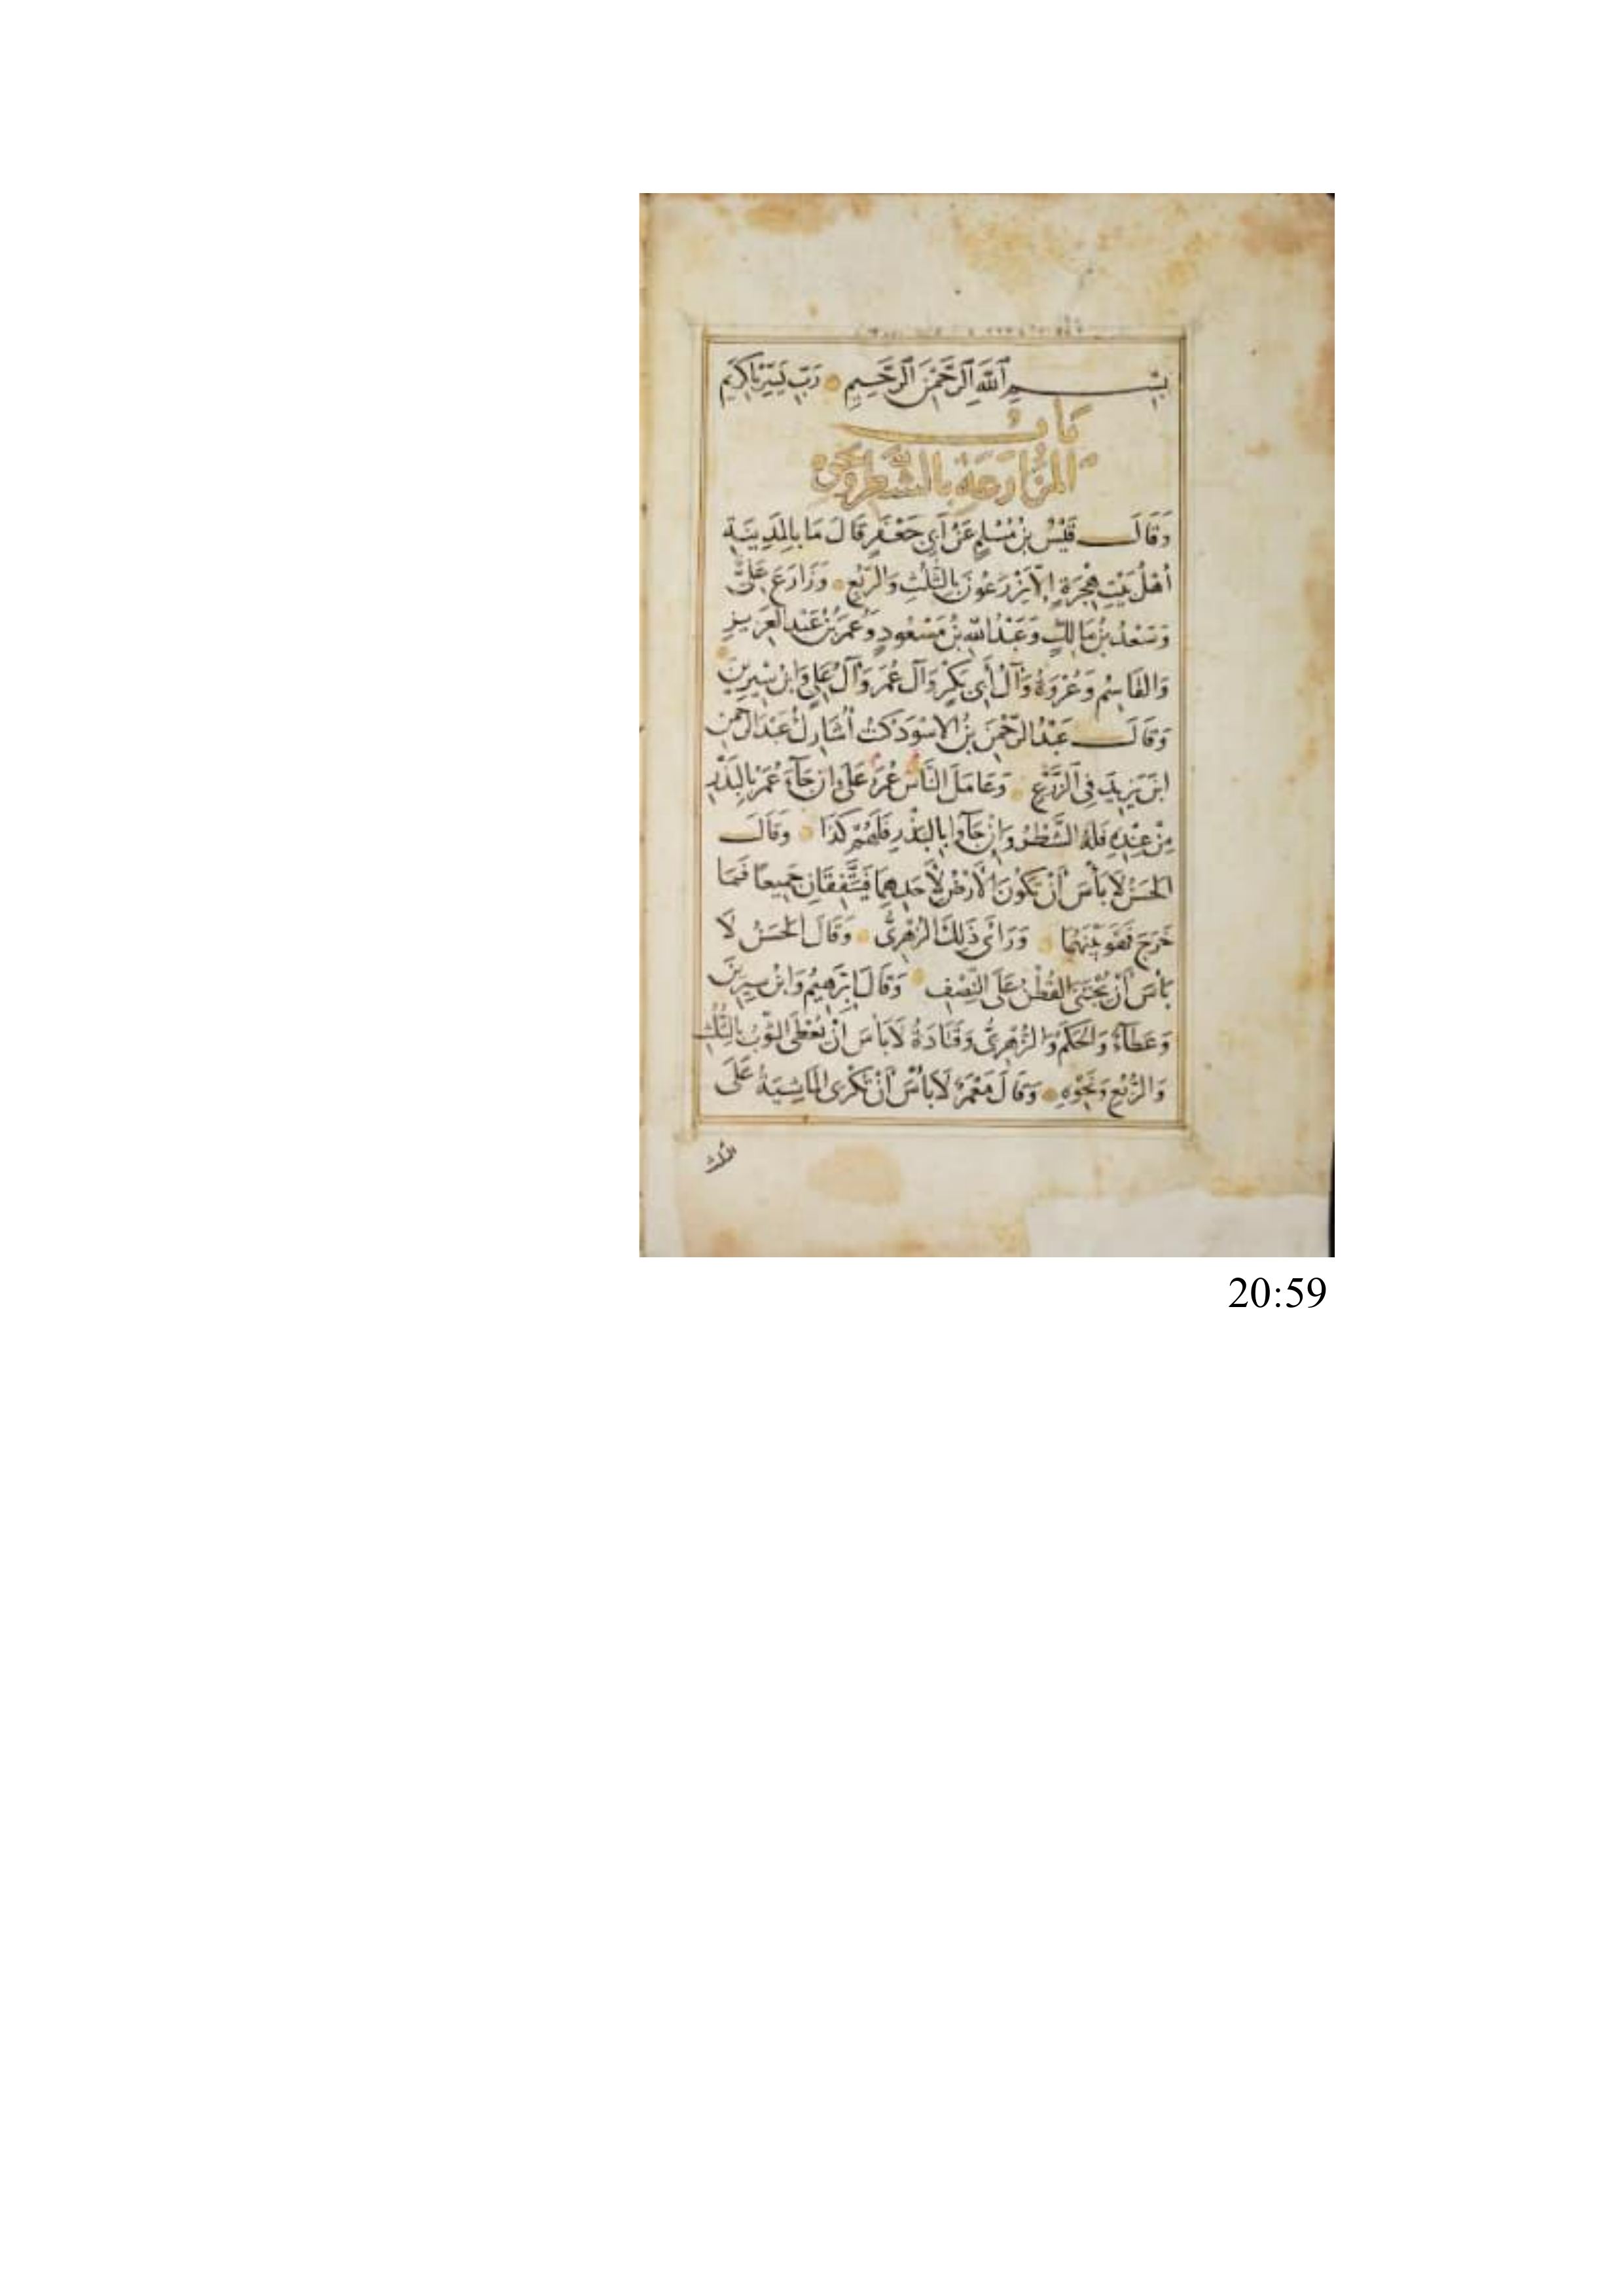 بِسْمِ ٱللَّهِ ٱلرَّحْمَنِ ٱلرَّحِيمِ رَبِّ يَسِّرْ يَا كَرِيمُ
بَابُ
الْمُزَارَعَةِ بِالشَّطْرِ وَنَحْوِهِ
وَقَالَ قَيْسُ بْنُ مُسْلِمٍ عَنْ أَبِي جَعْفَرٍ قَالَ مَا بِالْمَدِينَةِ
أَهْلُ بَيْتِ هِجْرَةٍ إِلَّا يَزْرَعُونَ بِالثُّلُثِ وَالرُّبُعِ وَزَارَعَ عَلِيٌّ
وَسَعْدُ بْنُ مَالِكٍ وَعَبْدُ اللَّهِ بْنُ مَسْعُودٍ وَعُمَرُ بْنُ عَبْدِ الْعَزِيزِ
وَالْقَاسِمُ وَعُرْوَةُ وَآلُ أَبِي بَكْرٍ وَآلُ عُمَرَ وَآلُ عَلِيٍّ وَابْنُ سِيرِينَ
وَقَالَ عَبْدُ الرَّحْمَنِ بْنُ الْأَسْوَدِ كُنْتُ أُشَارِكُ عَبْدَ الرَّحْمَنِ
ابْنَ يَزِيدَ فِي ٱلزَّرْعِ وَعَامَلَ النَّاسَ عُمَرُ عَلَى إِنْ جَآءَ عُمَرُ بِالْبَذْرِ
مِنْ عِنْدِهِ فَلَهُ الشَّطْرُ وَإِنْ جَآوا بِالْبَذْرِ فَلَهُمْ كَذَا وَقَالَ
الْحَسَنُ لَا بَأْسَ أَنْ تَكُونَ الْأَرْضُ لِأَحَدِهِمَا فَيُنْفِقَانِ جَمِيعًا فَمَا
خَرَجَ فَهُوَ بَيْنَهُمَا وَرَأَى ذَلِكَ الزُّهْرِيُّ وَقَالَ الْحَسَنُ لَا
بَأْسَ أَنْ يُجْتَنَى الْقُطْنُ عَلَى النِّصْفِ وَقَالَ إِبْرَهِيمُ وَابْنُ سِيرِينَ
وَعَطَآءٌ وَالْحَكَمُ وَالزُّهْرِيُّ وَقَتَادَةُ لَا بَأْسَ أَنْ يُعْطَى الثَّوْبُ بِالثُّلُثِ
وَالرُّبُعِ وَنَحْوِهِ وَقَالَ مَعْمَرٌ لَا بَأْسَ أَنْ تُكْرَى الْمَاشِيَةُ عَلَى
الثلث
20:59